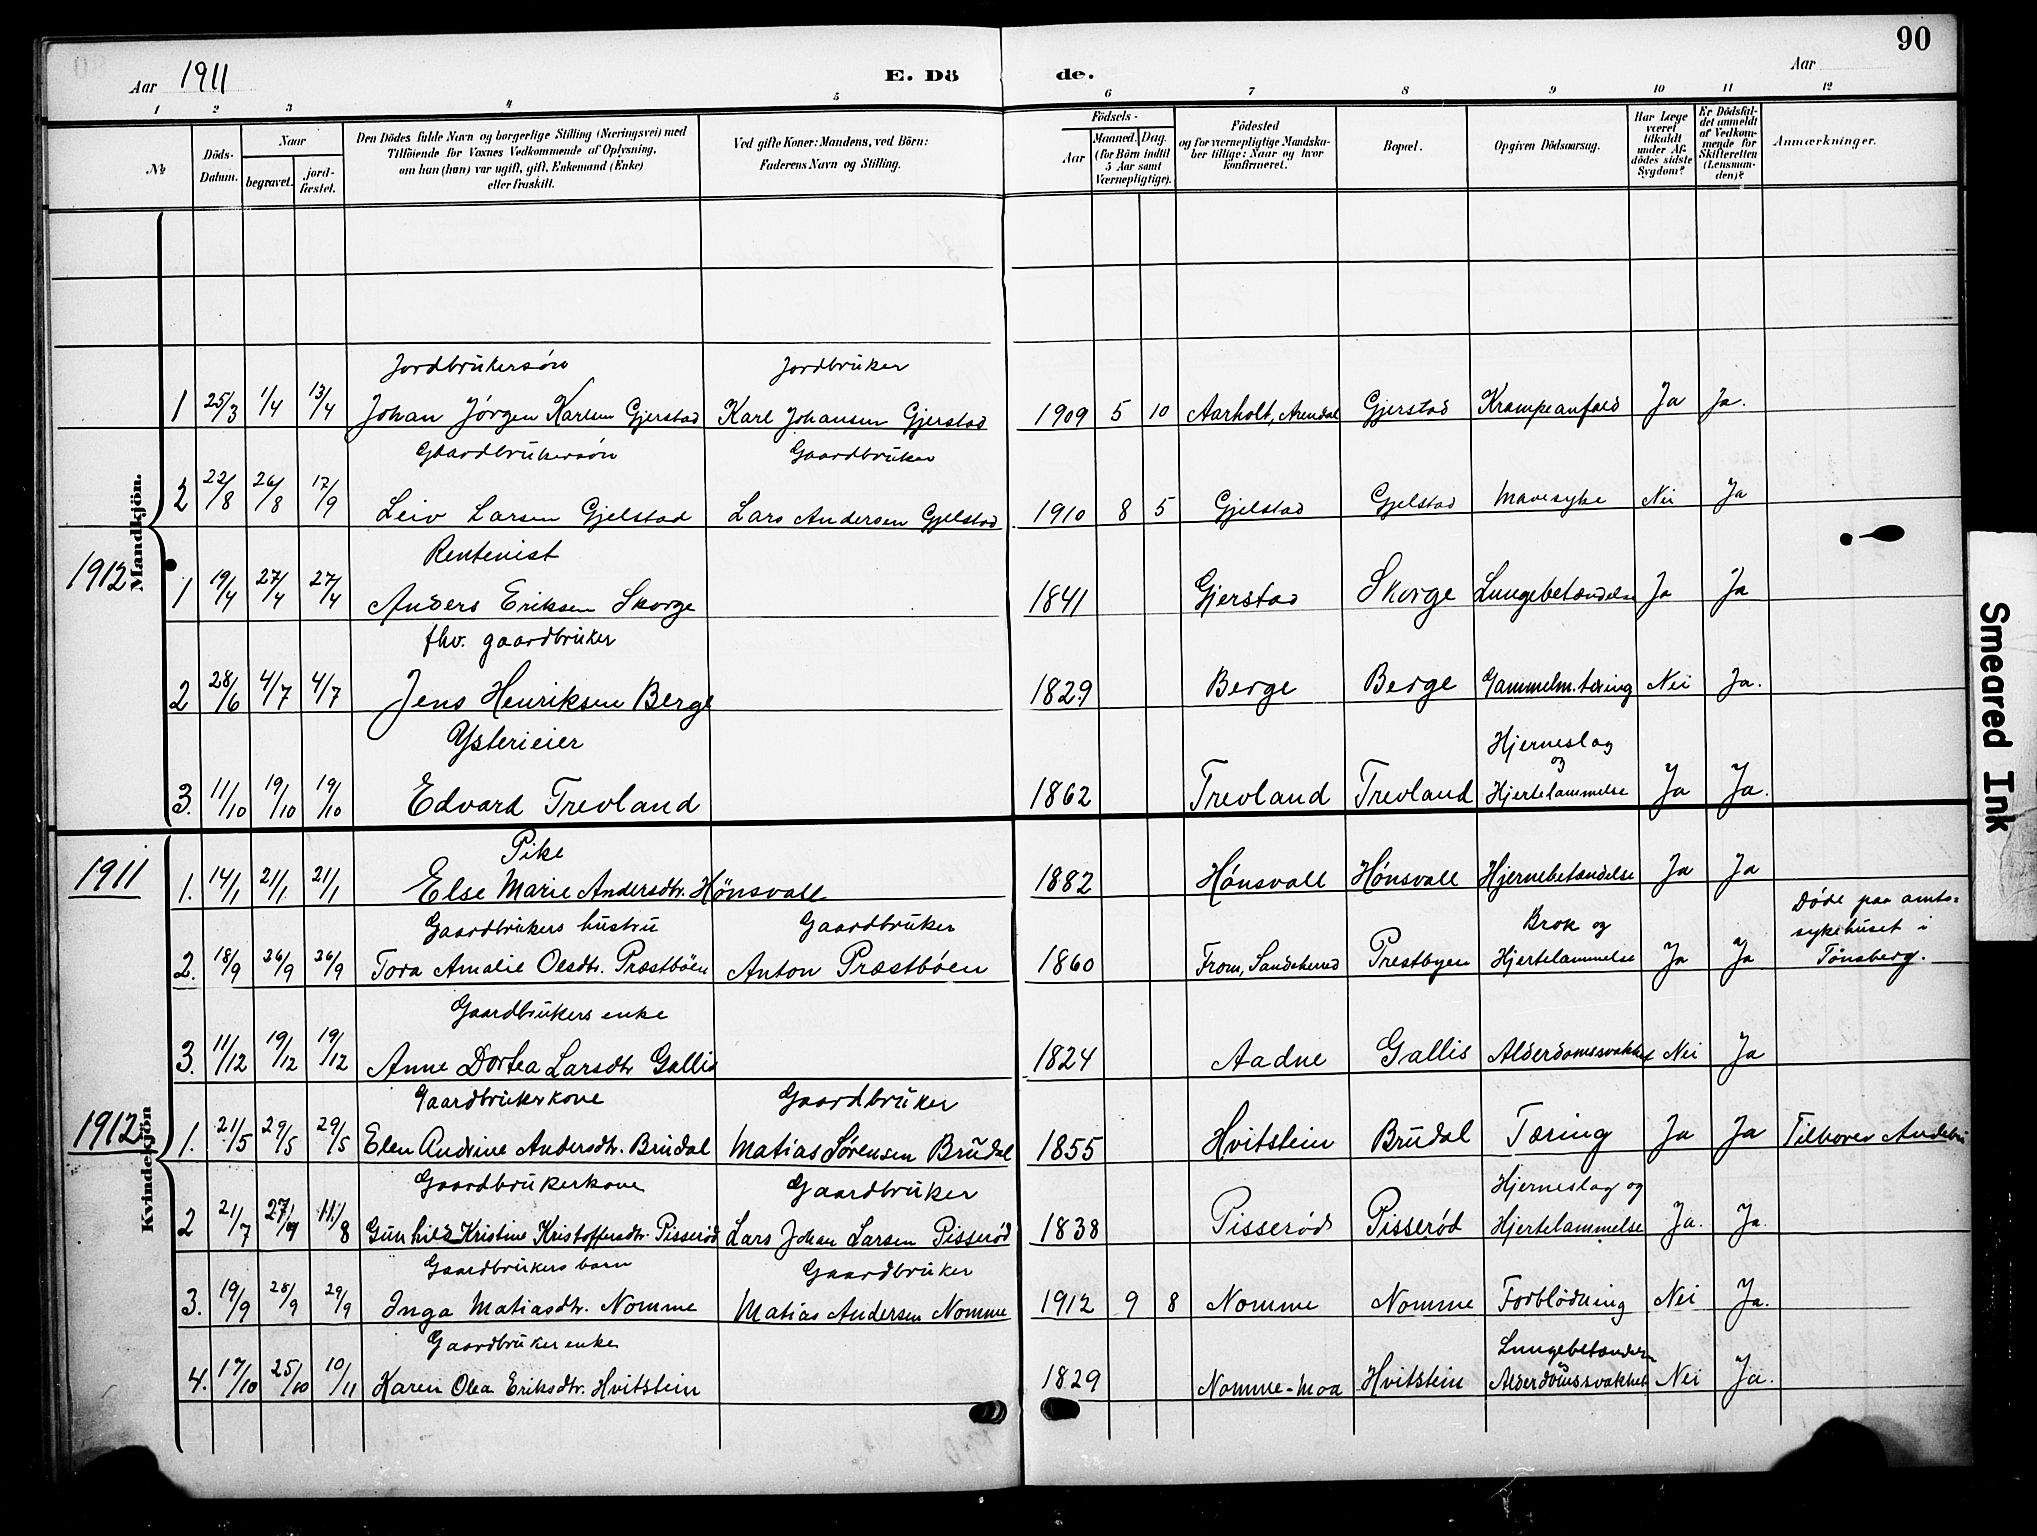 90
Aar 1911
E. Döde.
Aar
1 2 3 4 5 6 7 8 9 10 11 12
No
Döds-Datum.
Naar
begravet.
jord-fæstet.
Den Dödes fulde Navn og borgerlige Stilling (Næringsvei) med
Tilföiende for Voxnes Vedkommende af Oplysning,
om han (hun) var ugift, gift, Enkemand (Enke)
eller fraskilt.
Ved gifte Koner: Mandens, ved Börn:
Faderens Navn og Stilling.
Födsels-
Aar
Maaned. Dag.
(for Börn indtil
5 Aar samt
Værnepligtige).
Födested
og for værnepligtige Mandska-
ber tillige: Naar og hvor
konfirmeret.
Bopæl.
Opgiven Dödsaarsag.
Har Læge
været
tilkaldt
under Af-
dödes sidste
Sygdom?
Er Dödsfal-
det anmeldt
af Vedkom-
mende for
Skifteretten
(Lensman-
den)?
Anmærkninger.
Mandkjön.
Jordbrukersøn Jordbruker
1 25/3 1/4 17/4 Johan Jørgen Karlsen Gjerstad Karl Johansen Gjerstad 1909 5 10 Aarholt, Arendal Gjerstad Krampeanfald Ja Ja.
Gaardbrukersøn Gaardbruker
2 22/8 26/8 17/9 Leiv Larsen Gjelstad Lars Andersen Gjelstad 1910 8 5 Gjelstad Gjelstad Mavesyke Nei Ja
1912
Rentenist
1 19/4 27/4 27/4 Anders Eriksen Skorge 1841 Gjerstad Skorge Lungebetændelse Ja Ja
fhv. gaardbruker
2 28/6 4/7 4/7 Jens Henriksen Berge 1829 Berge Berge Gammelm. tæring Nei Ja.
Ysterieier Hjerneslag
og
3. 11/10 19/10 19/10 Edvard Trevland 1862 Trevland Trevland Hjertelammelse Ja Ja.
Kvindekjön
1911
Pike
1. 14/1 21/1. 21/1 Else Marie Andersdtr. Hønsvall 1882 Hónsvall Hónsvall Hjernebetændelse Ja Ja
Gaardbrukers hustru Gaardbruker Brok og Døde paa amts=
sykehuset i
2. 18/9 26/9 26/9 Tora Amalie Olsdtr. Præstbøen Anton Præstbøen 1860 From, Sandeherred Prestbyen Hjertelammelse Ja Ja Tønsberg.
Gaardbrukers enke
3. 11/12 19/12 19/12 Anne Dortea Larsdtr Gallis 1824 Aadne Gallis Alderdomssvakhet Nei Ja
1912
Gaardbrukerkone Gaardbruker
1. 21/5 29/5 29/5 Elen Andrine Andersdtr. Brudal Matias Sørensen Brudal 1855 Hvitstein Brudal Tæring Ja Ja Tilhører Andebu
Gaardbrukerkone Gaardbruker Hjerneslag og
2 21/7 11/8 Gunhild Kristine Kristoffersdtr. Pisserød Lars Johan Larsen Pisserød 1838 Pisserød Pisserød Hjertelammelse Ja. Ja.
Gaardbrukers barn Gaardbruker
3. 19/9 28/9 29/9 Inga Matiasdtr. Nomme Matias Andersen Nomme 1912 9 8 Nomme Nomme Forblødning Nei Ja.
Gaardbruker enke Lungebetændelse
4. 17/10 25/10 10/11 Karen Olea Eriksdtr. Hvitstein 1829 Nomme-moa Hvitstein Alderdomssvakhet Nei Ja.
Smeared Ink